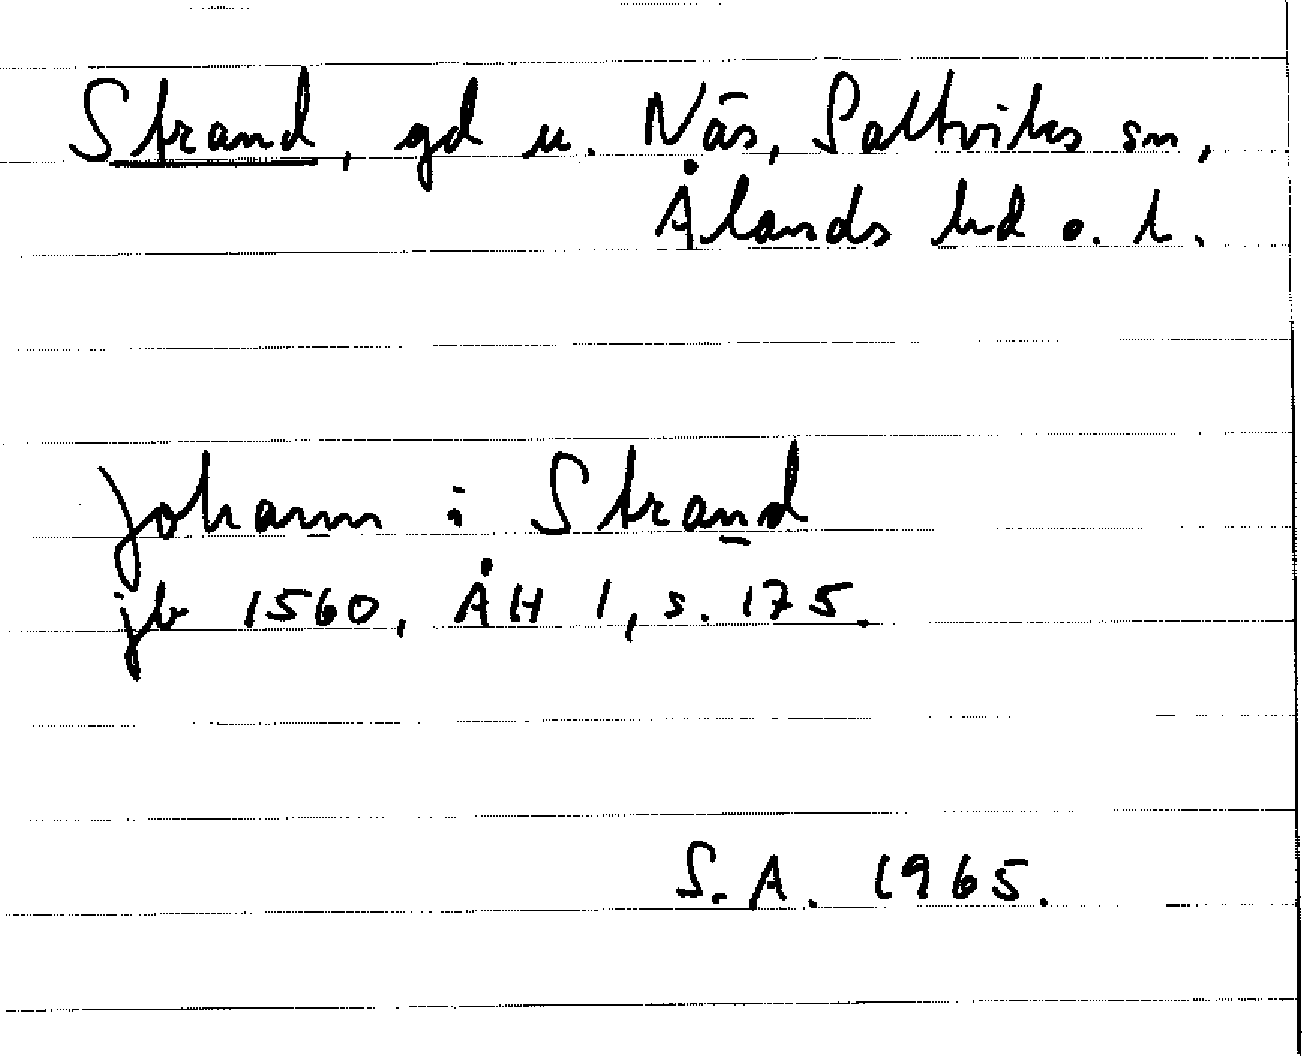 Strand, gd u. Näs, Saltviks sn,
Ålands hd o. l.
Johann i Strand
jb 1560, ÅH 1, s. 175.
S.A. 1965.